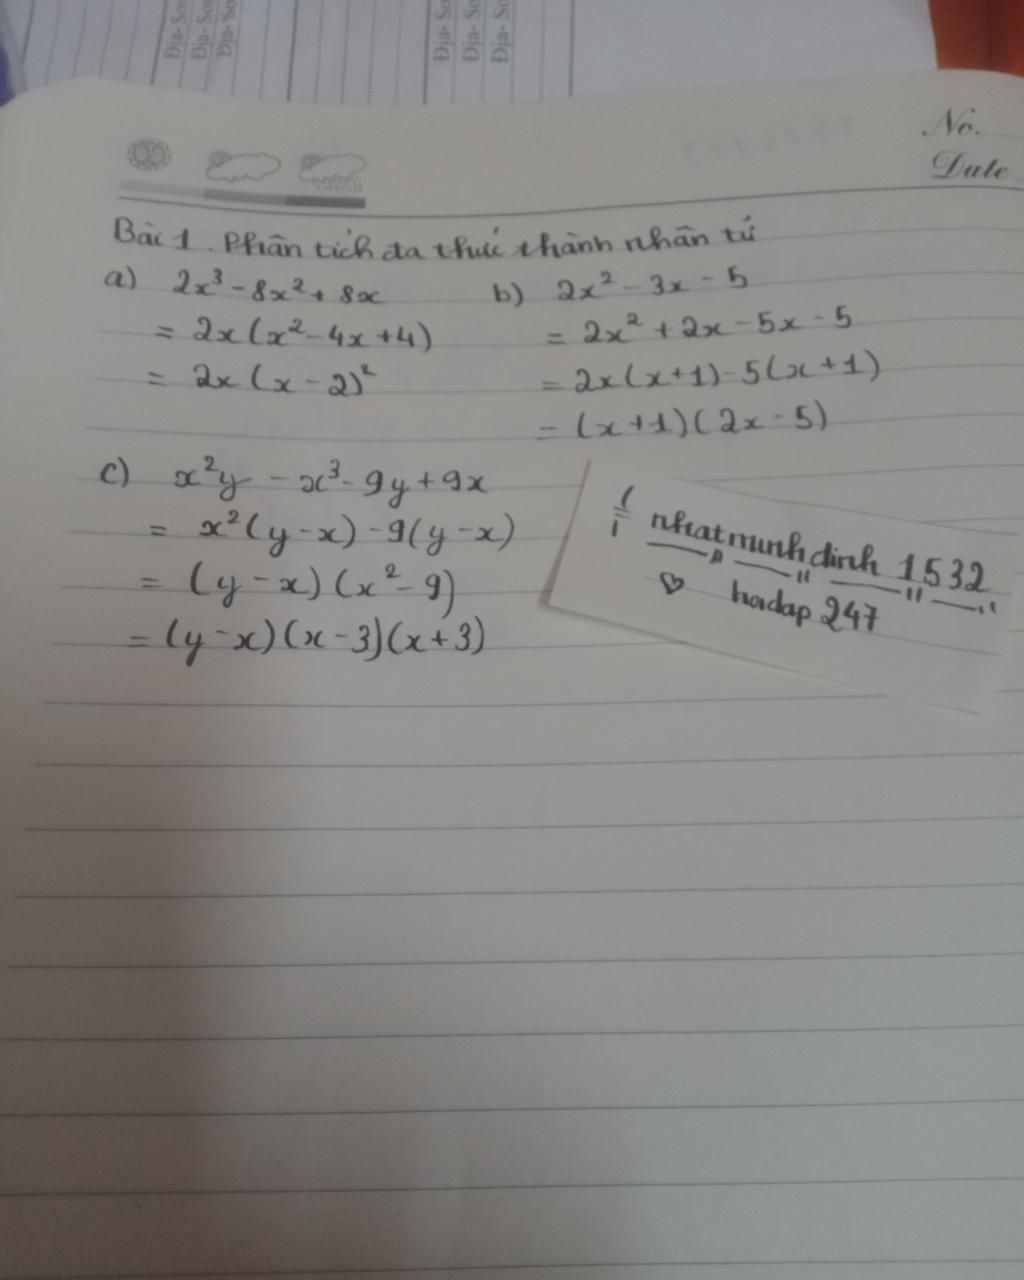 Địa- Sơ
Địa- Sơ
Địa- Sơ
Địa- Sơ
Địa- Sơ
Địa- Sơ
No.
Date
Bài 1. Phân tích đa thức thành nhân tử
a) 2x³ - 8x² + 8x
= 2x(x² - 4x + 4)
= 2x(x - 2)²
b) 2x² - 3x - 5
= 2x² + 2x - 5x - 5
= 2x(x+1) - 5(x+1)
= (x+1)(2x - 5)
c) x²y - x³ - 9y + 9x
= x²(y - x) - 9(y - x)
= (y - x)(x² - 9)
= (y - x)(x - 3)(x + 3)
nhatminhdinh 1532
♡ hoidap 247